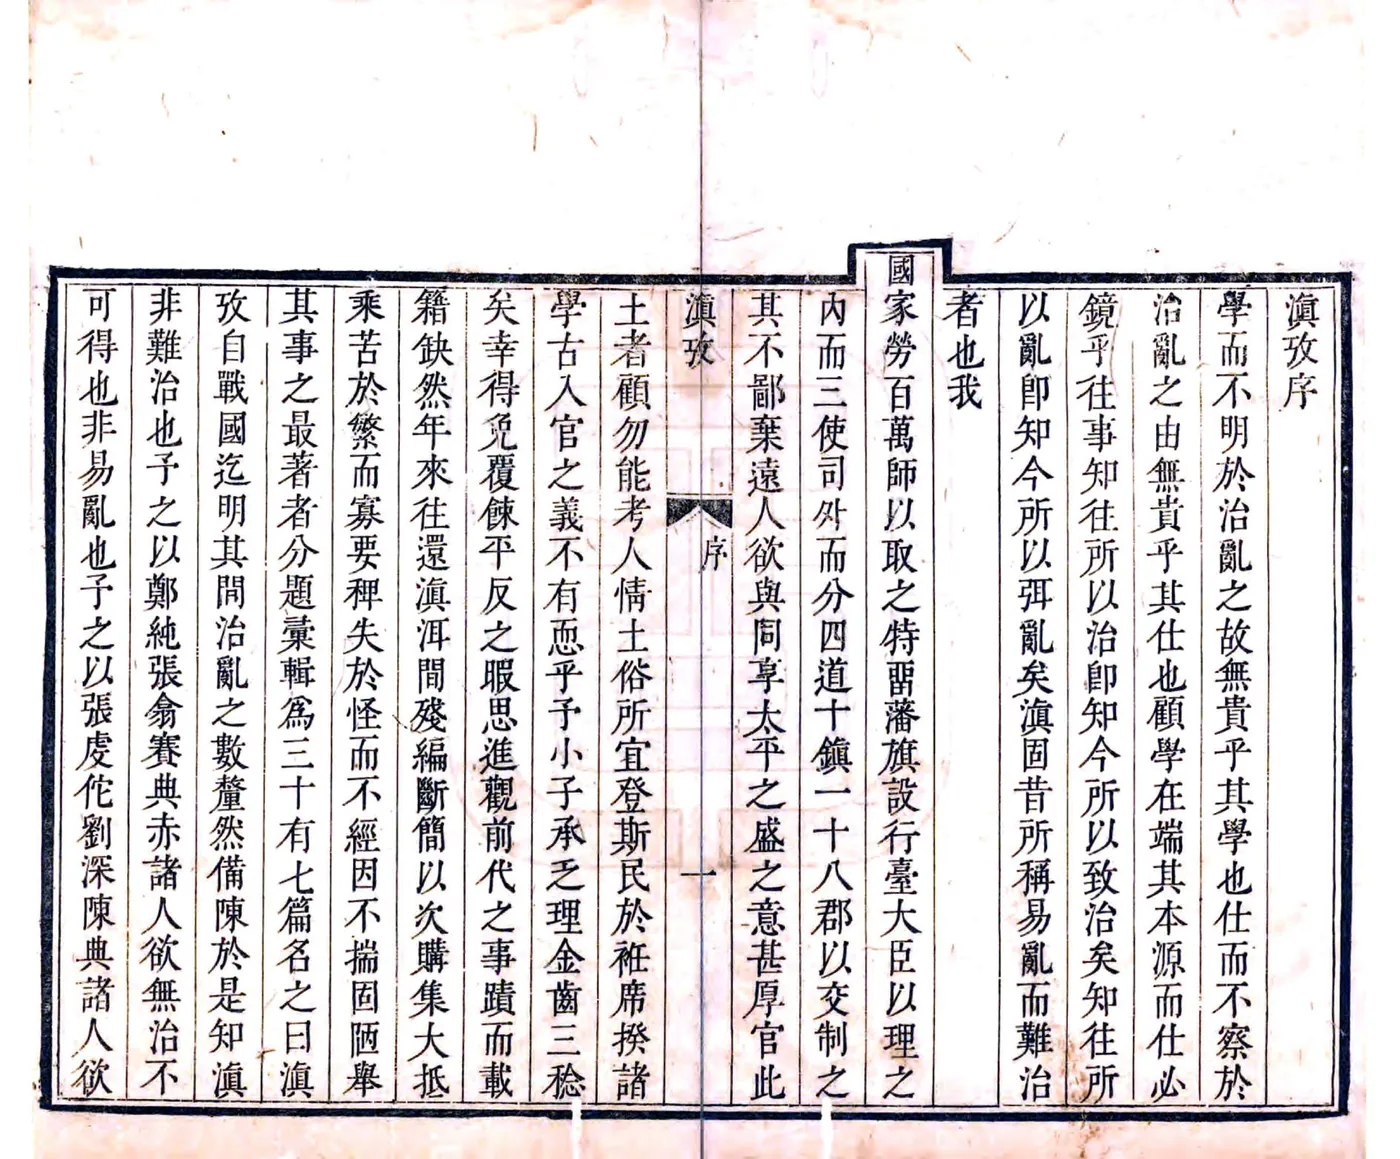 滇攷序
學而不明於治亂之故無貴乎其學也仕而不察於
治亂之由無貴乎其仕也顧學在端其本源而仕必
鏡乎往事知往所以治卽知今所以致治矣知往所
以亂卽知今所以弭亂矣滇固昔所稱易亂而難治
者也我
國家勞百萬師以取之特畱藩旗設行臺大臣以理之
內而三使司外而分四道十鎮一十八郡以交制之
其不鄙棄遠人欲與同享太平之盛之意甚厚官此
滇攷
序
一
土者顧勿能考人情土俗所宜登斯民於袵席揆諸
學古入官之義不有恧乎予小子承乏理金齒三稔
矣幸得免覆餗平反之暇思進觀前代之事蹟而載
籍缺然年來往還滇洱間殘編斷簡以次購集大抵
乘苦於繁而寡要稗失於怪而不經因不揣固陋舉
其事之最著者分題彙輯爲三十有七篇名之曰滇
攷自戰國迄明其間治亂之數釐然備陳於是知滇
非難治也予之以鄭純張翕賽典赤諸人欲無治不
可得也非易亂也予之以張虔佗劉深陳典諸人欲